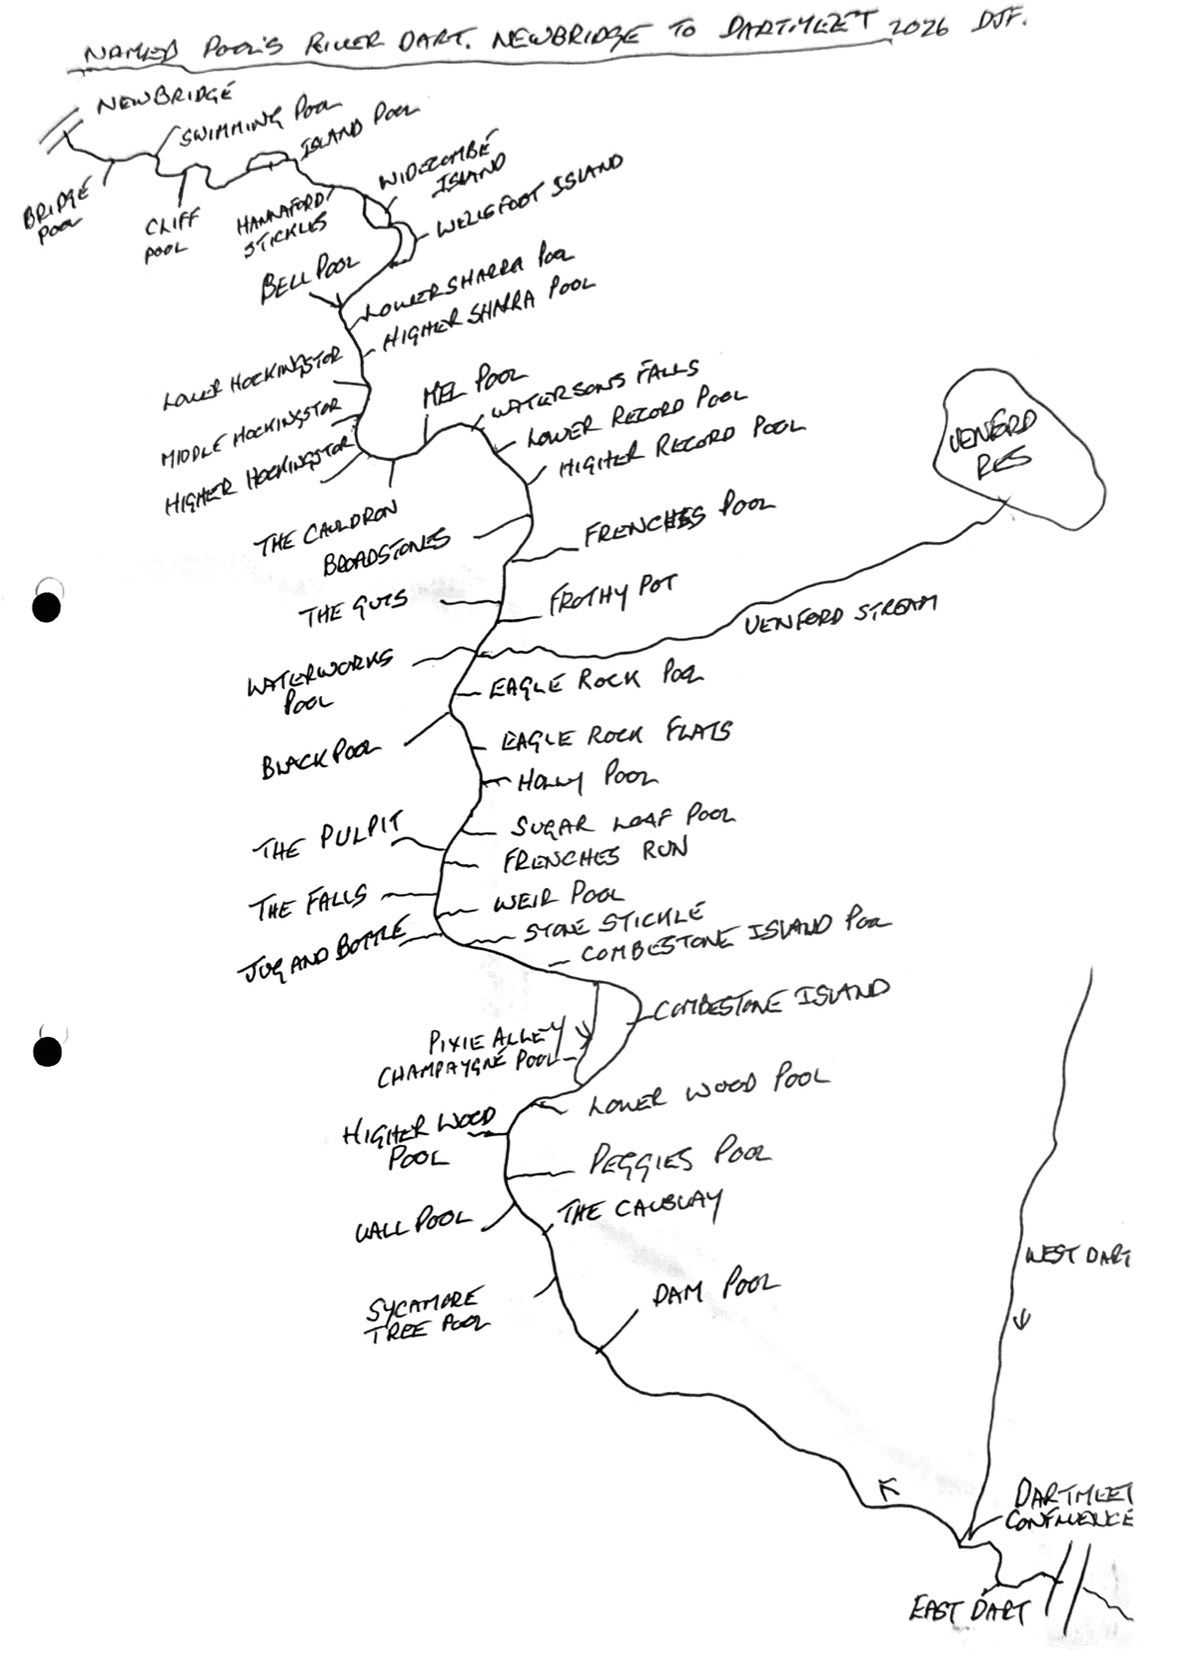 NAMED POOL'S RIVER DART. NEWBRIDGE TO DARTMEET 2026 DJF.
NEWBRIDGE
SWIMMING POOL
ISLAND POOL
WIDECOMBE
ISLAND
WELLSFOOT ISLAND
BRIDGE
POOL
CLIFF
POOL
HANNAFORD
STICKLES
BELL POOL
LOWER SHARRA POOL
HIGHER SHARRA POOL
LOWER HOCKINGSTOR
MIDDLE HOCKINGSTOR
HIGHER HOCKINGSTOR
MEL POOL
WATERSONS FALLS
LOWER RECORD POOL
HIGHER RECORD POOL
VENFORD
RES
THE CAULDRON
BROADSTONES
FRENCHES POOL
THE GUTS
FROTHY POT
VENFORD STREAM
WATERWORKS
POOL
EAGLE ROCK POOL
BLACK POOL
EAGLE ROCK FLATS
HOLLY POOL
THE PULPIT
SUGAR LOAF POOL
FRENCHES RUN
THE FALLS
WEIR POOL
JUG AND BOTTLE
STONE STICKLE
COMBESTONE ISLAND POOL
COMBESTONE ISLAND
PIXIE ALLEY
CHAMPAYGNE POOL
LOWER WOOD POOL
HIGHER WOOD
POOL
PEGGIES POOL
WALL POOL
THE CAUSWAY
SYCAMORE
TREE POOL
DAM POOL
WEST DART
DARTMEET
CONFLUENCE
EAST DART